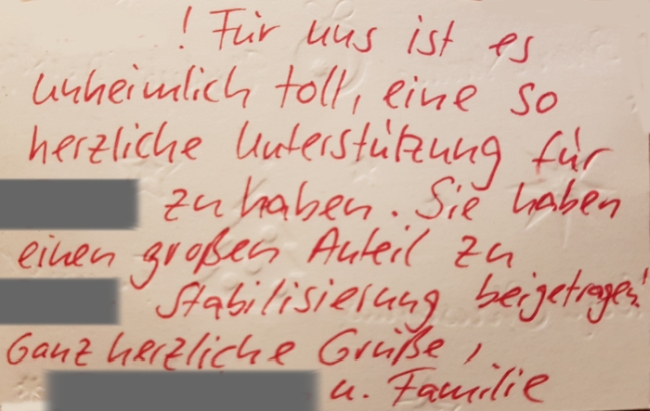 ! Für uns ist es
unheimlich toll, eine so
herzliche Unterstützung für
zu haben. Sie haben
einen großen Anteil zu
Stabilisierung beigetragen!
Ganz herzliche Grüße,
u. Familie